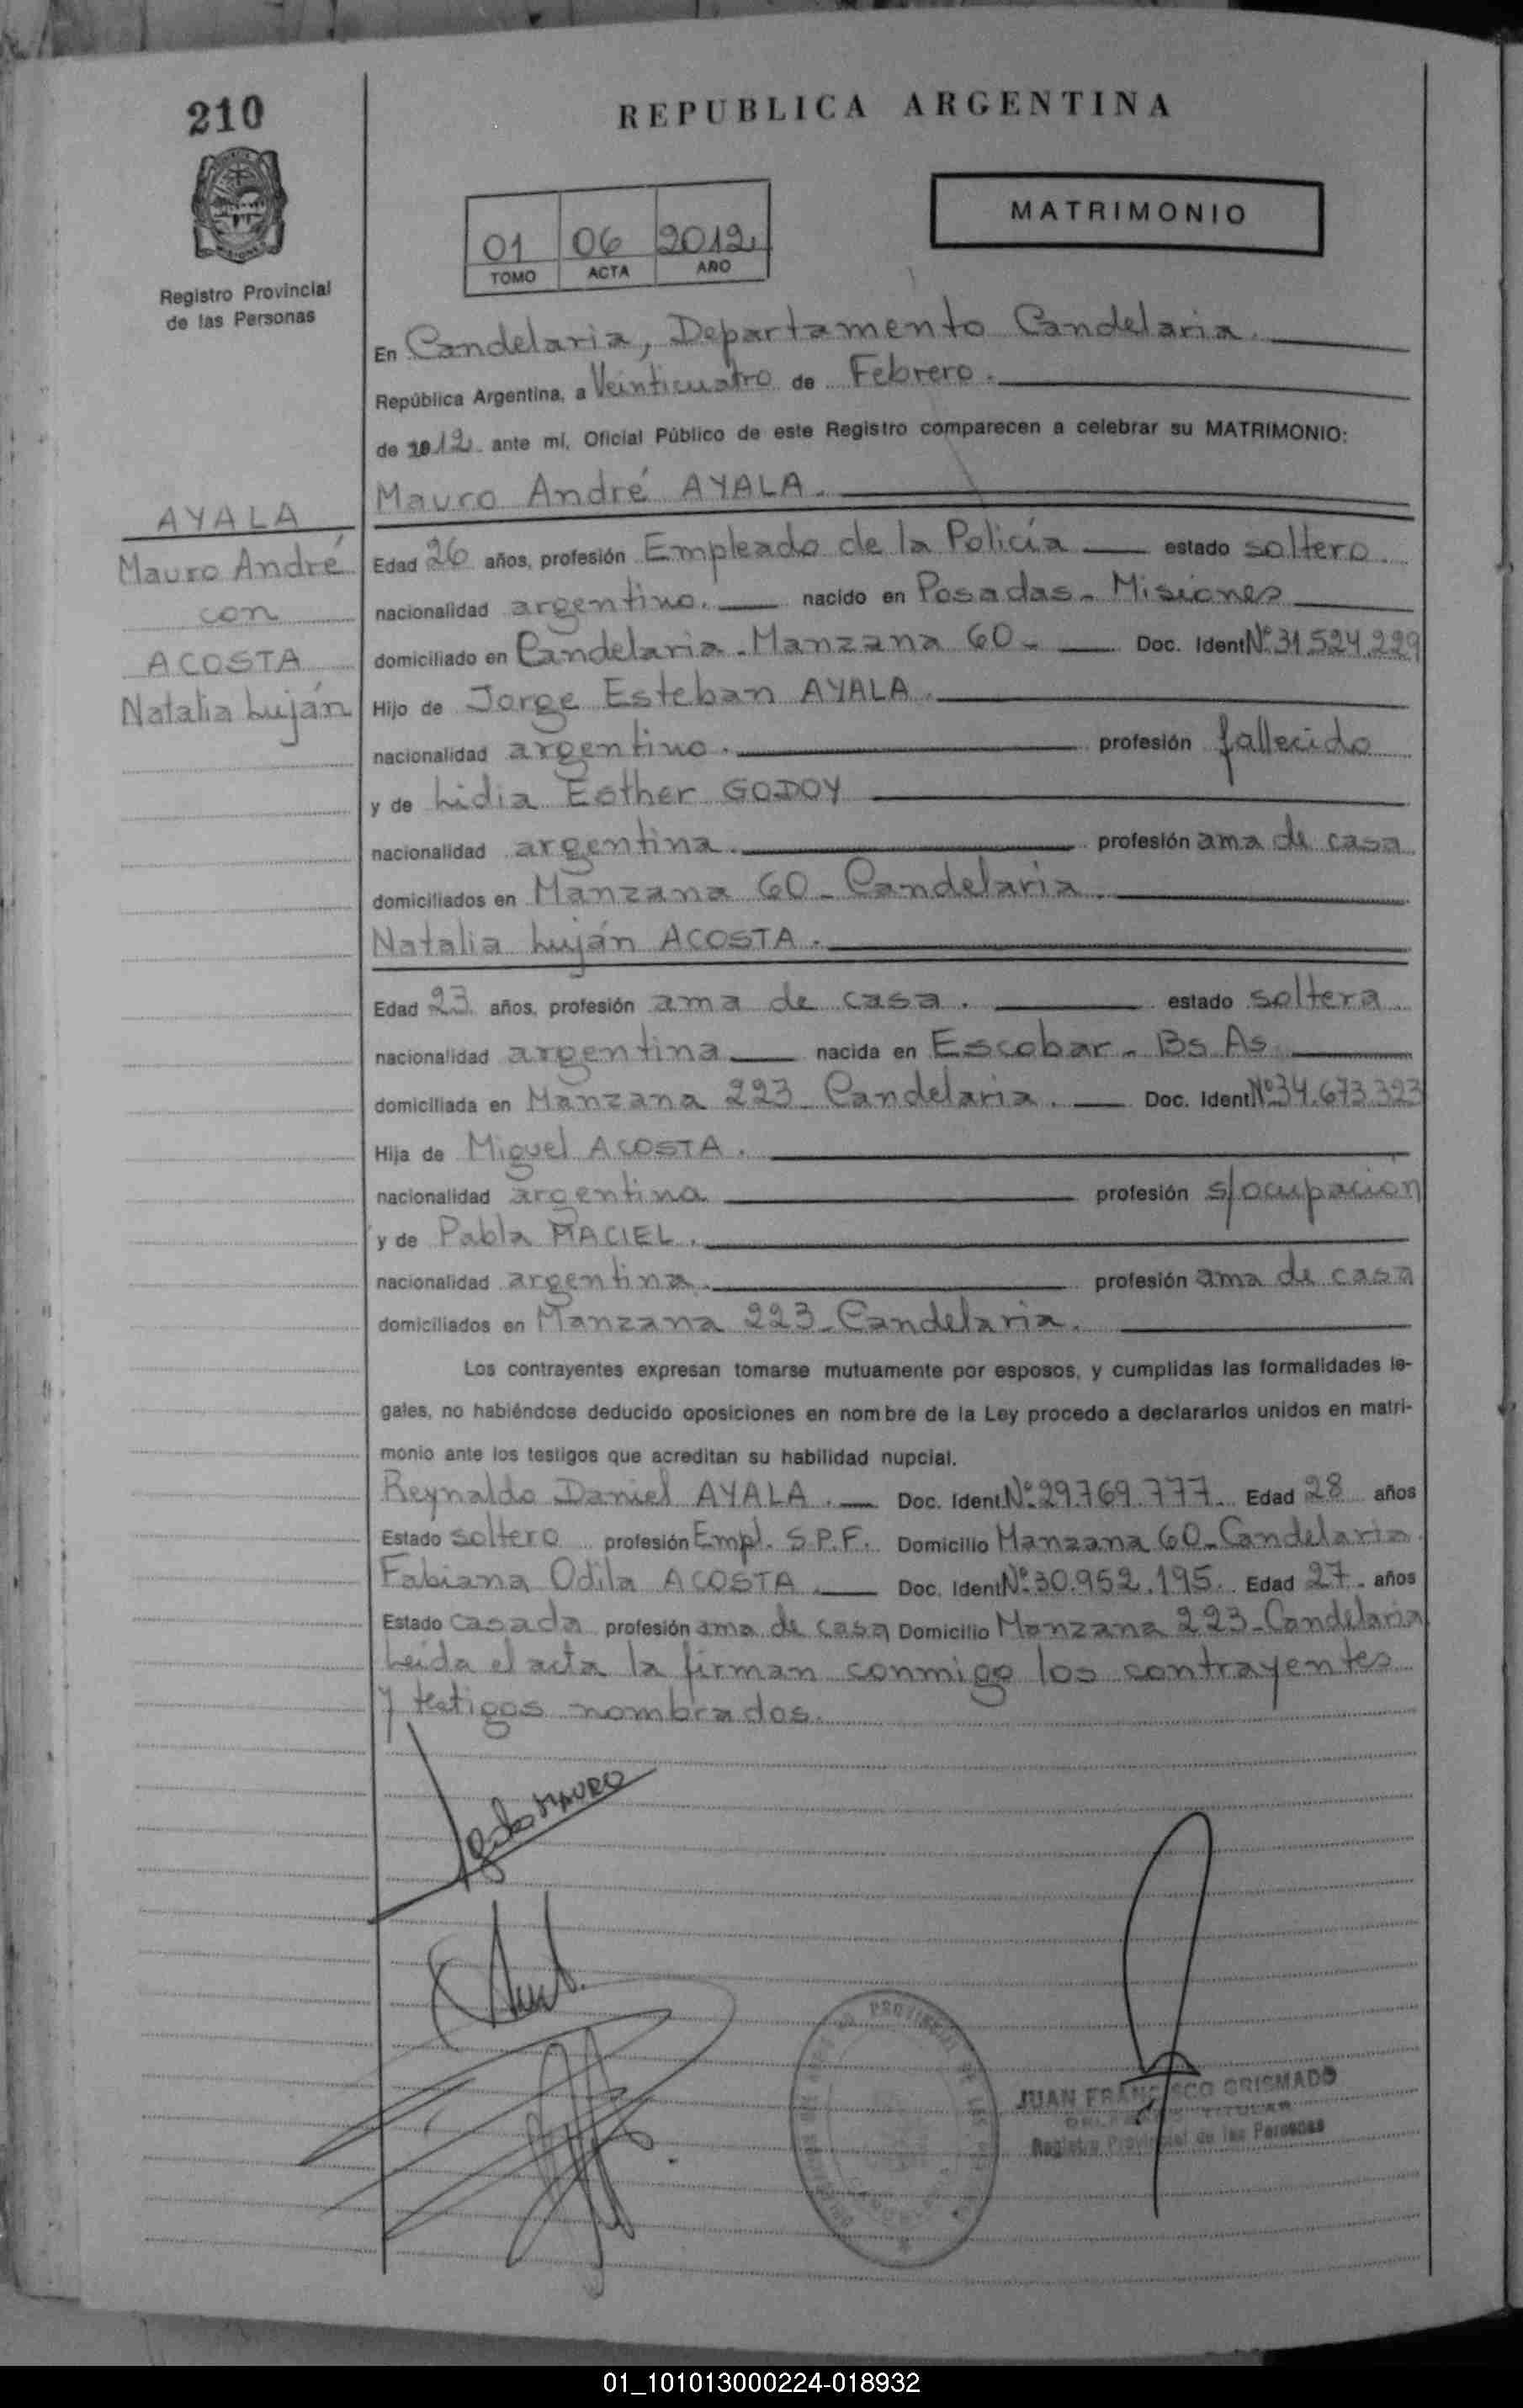 210
REPUBLICA ARGENTINA
MATRIMONIO
01 06 2012
TOMO ACTA AÑO
Registro Provincial
de las Personas
En Candelaria, Departamento Candelaria.
República Argentina, a Veinticuatro de Febrero.
de 2012 ante mí, Oficial Público de este Registro comparecen a celebrar su MATRIMONIO:
Mauro André AYALA.
AYALA
Mauro André
con
ACOSTA
Natalia Luján
Edad 26 años, profesión Empleado de la Policía estado soltero.
nacionalidad argentino. nacido en Posadas - Misiones
domiciliado en Candelaria - Manzana 60 - Doc. Ident Nº 31.524.229
Hijo de Jorge Esteban AYALA.
nacionalidad argentino. profesión fallecido
y de Lidia Esther GODOY
nacionalidad argentina. profesión ama de casa
domiciliados en Manzana 60 - Candelaria.
Natalia Luján ACOSTA.
Edad 23 años, profesión ama de casa. estado soltera
nacionalidad argentina nacida en Escobar - Bs As
domiciliada en Manzana 223 - Candelaria. Doc. Ident Nº 34.673.323
Hija de Miguel ACOSTA.
nacionalidad argentina profesión s/ocupación
y de Pabla MACIEL.
nacionalidad argentina. profesión ama de casa
domiciliados en Manzana 223 - Candelaria.
Los contrayentes expresan tomarse mutuamente por esposos, y cumplidas las formalidades le-
gales, no habiéndose deducido oposiciones en nombre de la Ley procedo a declararlos unidos en matri-
monio ante los testigos que acreditan su habilidad nupcial.
Reynaldo Daniel AYALA. Doc. Ident. Nº 29.769.777. Edad 28 años
Estado soltero profesión Empl. S.P.F. Domicilio Manzana 60 - Candelaria.
Fabiana Odila ACOSTA. Doc. Ident Nº 30.952.195. Edad 27. años
Estado casada profesión ama de casa Domicilio Manzana 223 - Candelaria
Leída el acta la firman conmigo los contrayentes
y testigos nombrados.
MAURO
JUAN FRANCISCO GRISMADO
DELEGADO TITULAR
Registro Provincial de las Personas
01_101013000224-018932